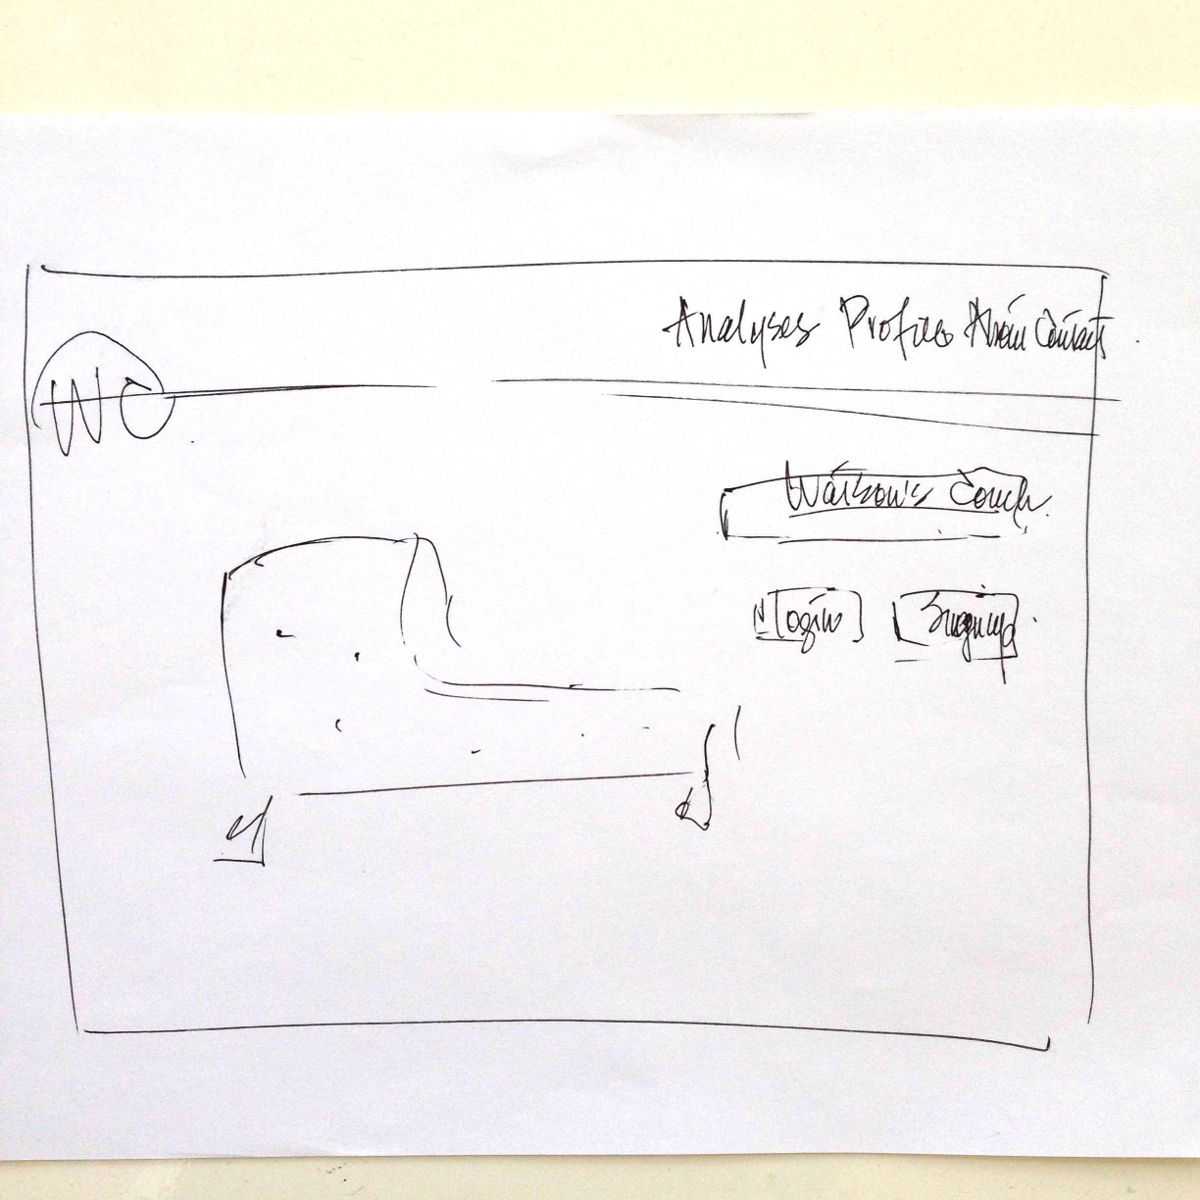 Analyses Profiles About Contact
WC
Watson's Couch
Login Signup